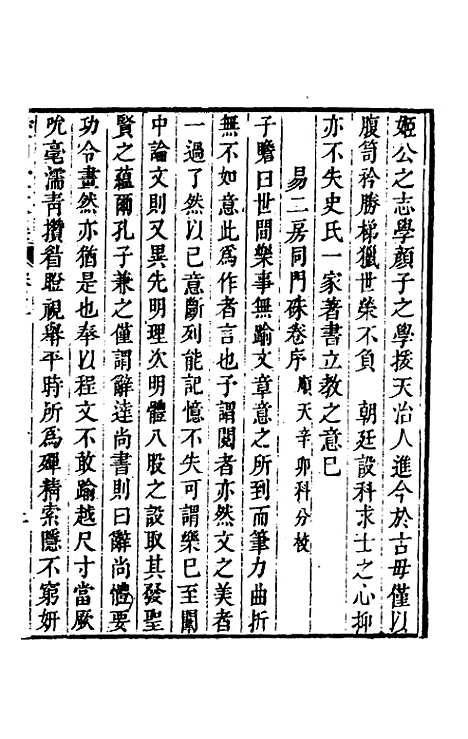 姬公之志學顏子之學援天治人進今於古毋僅以
腹笥衿勝梯獵世榮不負　朝廷設科求士之心抑
亦不失史氏一家著書立教之意已
易二房同門硃卷序　順天辛卯科分校
子瞻曰世間樂事無踰文章意之所到而筆力曲折
無不如意此為作者言也予謂閱者亦然文之美者
一過了然以己意斷列能記憶不失可謂樂已至闈
中論文則又異先明理次明體八股之設取其發聖
賢之蘊爾孔子兼之僅謂辭達尚書則曰辭尚體要
功令晝然亦猶是也奉以程文不敢踰越尺寸當厥
吮毫濡青攢眉瞪視舉平時所為殫精索隱不窮妍